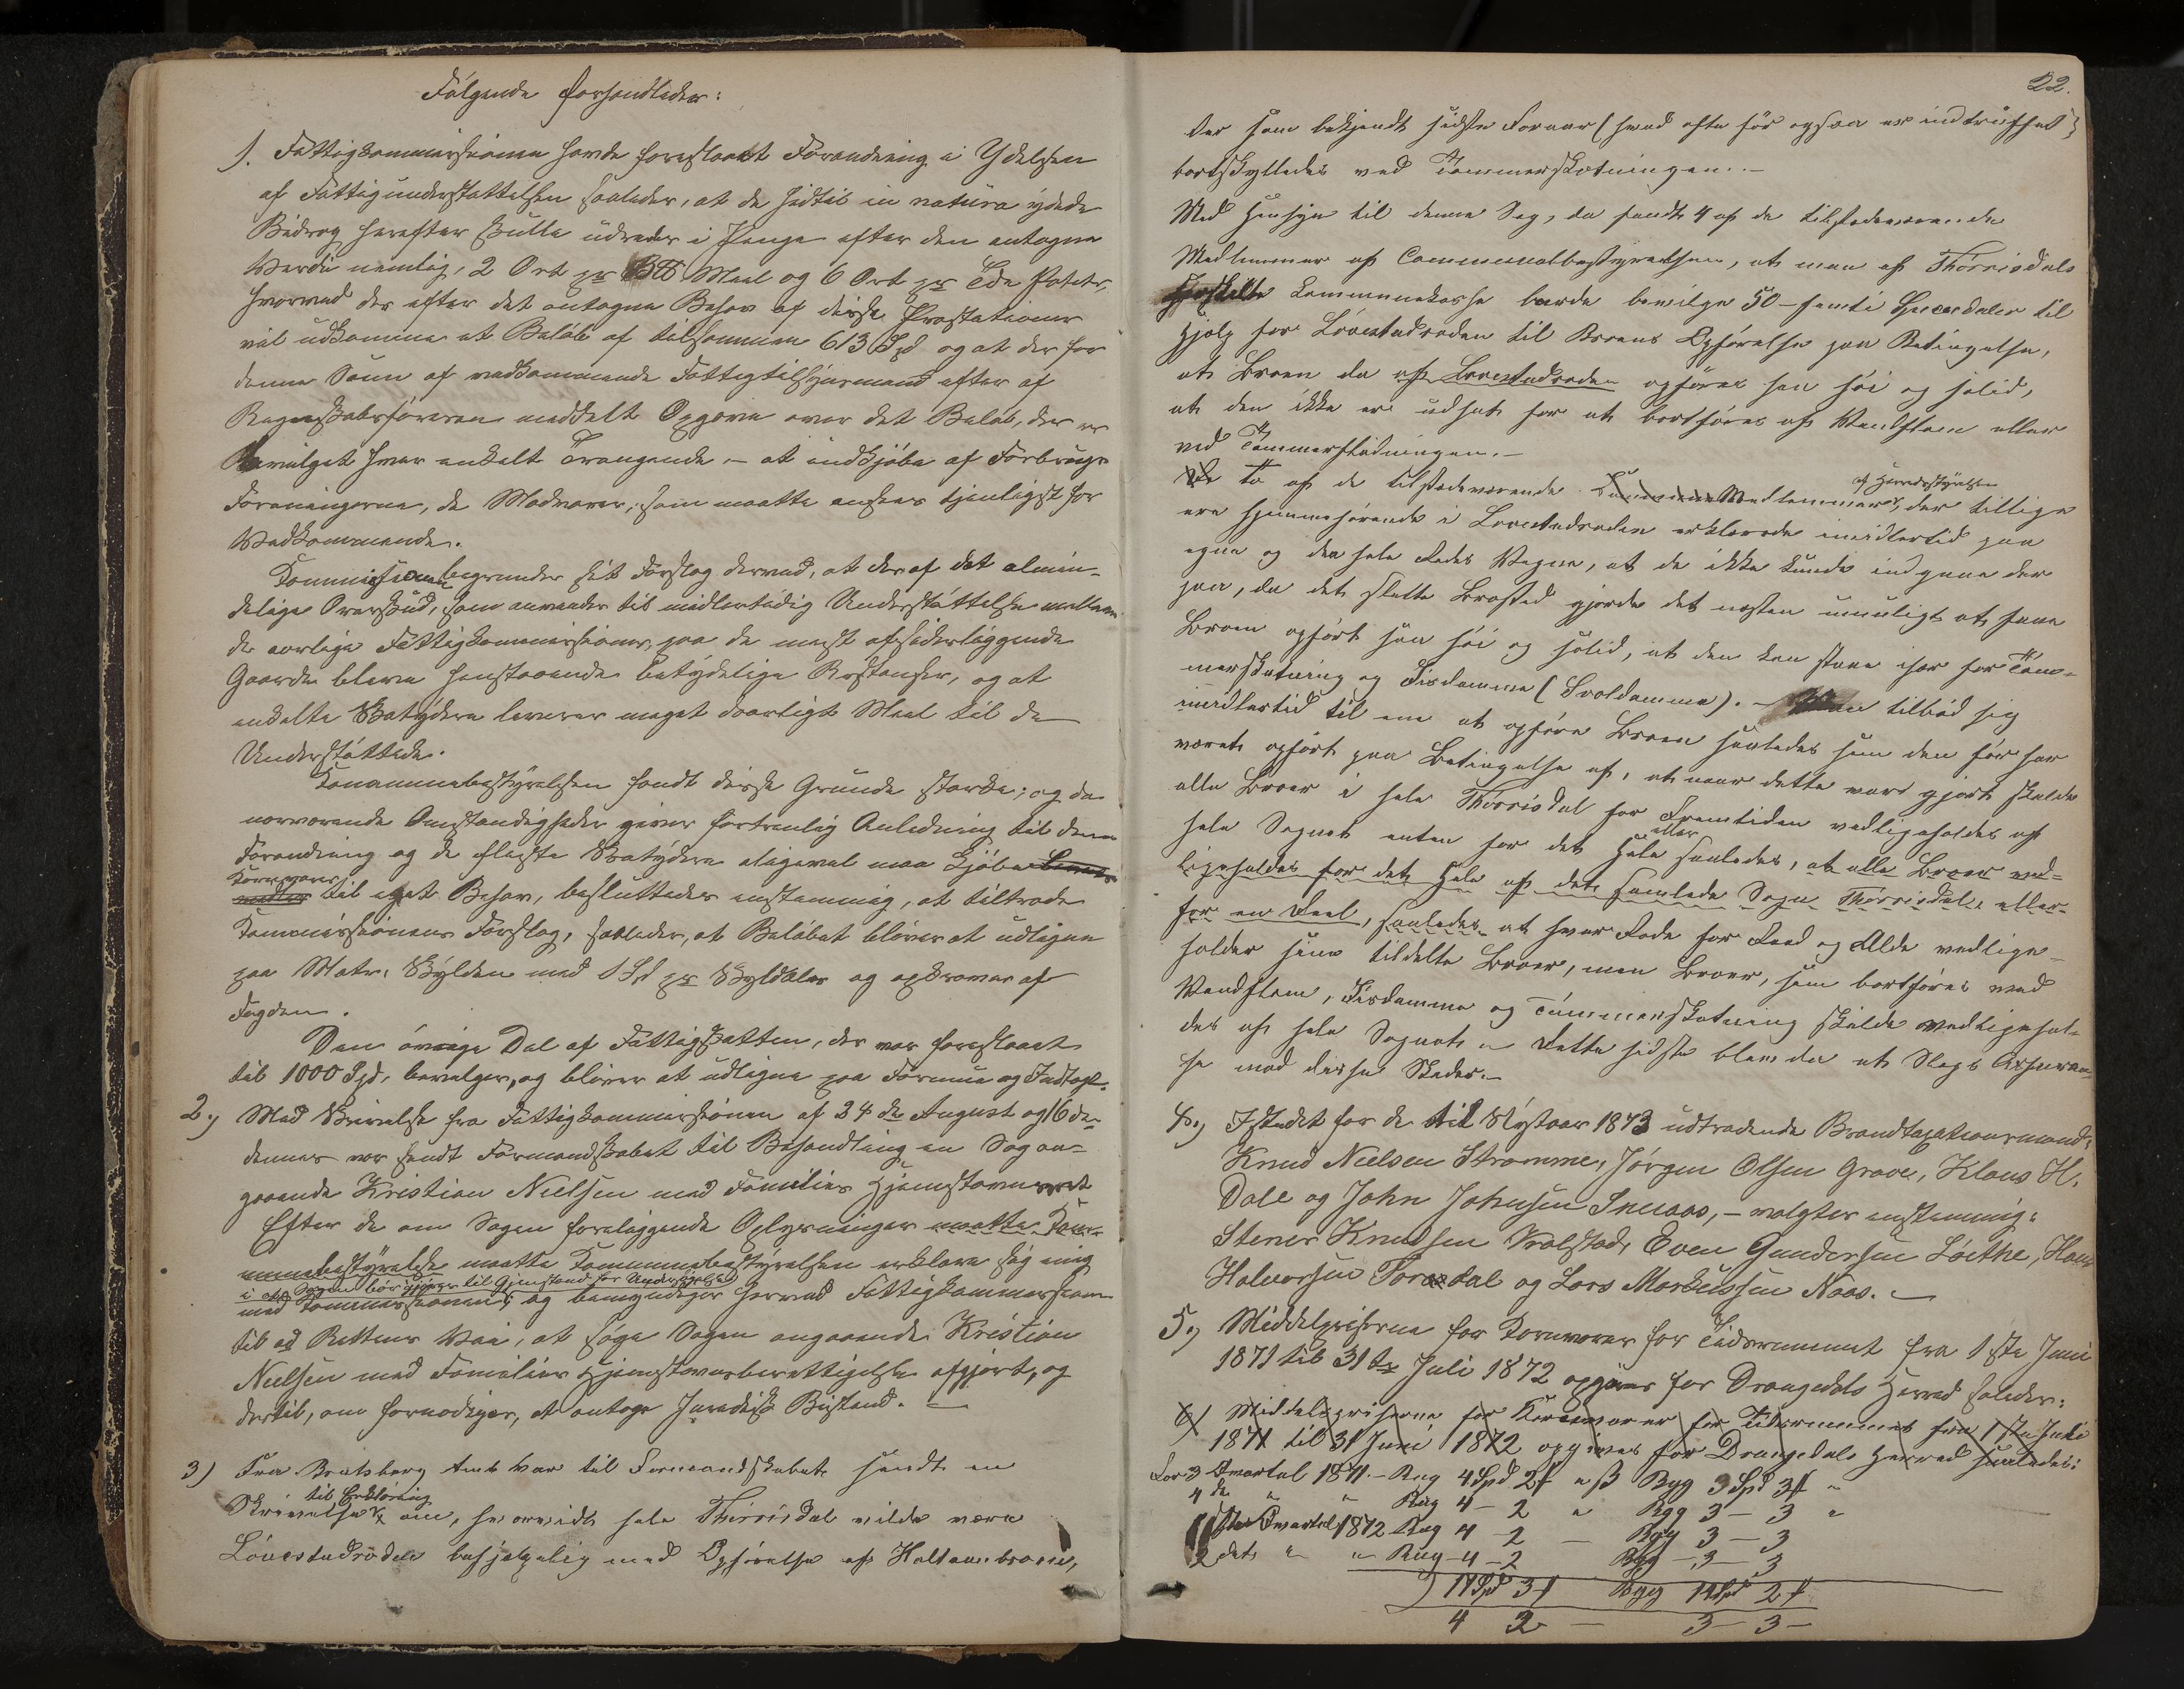 Følgende forhandledes:
1. Fattigkommissionen havde foreslaaet Forandring i Ydelsen
af Fattigunderstøttelsen saaledes, at de hidtil in natura ydede
Bidrag herefter skulle udredes i Penge efter den antagne
Værdi nemlig, 2 Ort pr B℔ Meel og 6 Ort pr Tde Poteter,
hvorved der efter det antagne Behov af disse Præstationer
vil udkomme et Beløb af tilsammen 613 Spd og at der for
denne Sum af vedkommende Fattigtilsynsmand efter af
Regnskabsføreren meddelt Opgave over det Beløb, der er
bevilget hver enkelt Trængende – at indkjøbe af Forbrugs
Foreningerne, de Madvarer, som maatte ansees tjenligst for
Vedkommende.
Kommissionen begrunder sit Forslag derved, at der af det almin-
delige Overskud, som anvendes til midlertidig Understøttelse mellem
de aarlige Fattigkommissioner, paa de mest afsidesliggende
Gaarde bleve henstaaende betydelige Restanser, og at
enkelte Skatydere leverer meget daarligt Meel til de
Understøttede.
Kommunebestyrelsen fandt disse Grunde stærke; og da
nærværende Omstændigheder giver fortrinlig Anledning til denne
Forandring og de fleste Skatydere alligevel maa kjøbe
Kornvarer
til eget Behov, besluttedes enstemmig, at tiltræde
Kommissionens Forslag, saaledes, at Beløbet bliver at udligne
paa Matr. Skylden med 1 Spd pr Skylddaler og opkræves af
Fogden.
Den øvrige Del af Fattigskatten, der var foreslaaet
til 1000 Spd, bevilges, og bliver at udligne paa Formue og Indtægt.
2.) Med Skrivelse fra Fattigkommissionen af 24de August og 16de
dennes var sendt Formandskabet til Behandling en Sag an-
gaaende Kristian Nielsen med Families Hjemstavnsret
Efter de om Sagen foreliggende Oplysninger maatte Kom-
munebestyrelse maatte Kommunebestyrelsen erklære sig enig
i at Sagen bør gjøres til Gjenstand for Undersøgelse
med Kommissionen, og bemyndiger herved Fattigkommissionen
til ad Rettens Vei, at søge Sagen angaaende Kristian
Nielsen med Families Hjemstavnsberettigelse afgjort, og
dertil, om fornødiges, at antage Juridisk Bistand. –
3) Fra Bratsberg Amt var til Formandskabet sendt en
til Erklæring
Skrivelse om, hvorvidt hele Thørrisdal vilde være
Løvestadroden behjælpelig med Opførelse af Holtanbroen,
22.
der som bekjendt sidste Foraar (hvad ofte før ogsaa er indtruffet)
bortskylledes ved Tømmerskotningen. –
Med Hensyn til denne Sag, da fandt 4 af de tilstedeværende
Medlemmer af Communalbestyrelsen, at man af Thørrisdals
særskilte Kommunekasse burde bevilge 50 – femti Speciedaler til
Hjælp for Løvestadroden til Broens Opførelse paa Betingelse,
at Broen da af Løvestadroden opføres saa høi og solid,
at den ikke er udsat for at bortføres af Vandflom eller
ved Tømmerflødningen. –
De to af de tilstedeværende Kommune Medlemmer, der tillige
af Herredsstyrelsen
ere hjemmehørende i Løvestadroden erklærede imidlertid paa
egne og den hele Rodes Vegne, at de ikke kunde indgaae der
paa, da det slette Brosted gjorde det næsten umuligt at faae
Broen opført saa høi og solid, at den kan staae især for Tøm-
merskotning og Isdamme (Svoldamme). – Man tilbød sig
imidlertid til en at opføre Broen saaledes som den før har
været opført paa Betingelse af, at naar dette var gjort skulde
alle Broer i hele Thørrisdal for Fremtiden vedligeholdes af
eller
hele Sognet enten for det Hele saaledes, at alle Broer ved-
ligeholdes for det Hele af det samlede Sogn Thørrisdal, eller
for en Deel, saaledes at hver Rode for Raad og Ælde vedlige-
holder sine tildelte Broer, men Broer, som bortføres med
Vandflom, Isdamme og Tømmerskotning skulde vedligehol-
des af hele Sognet. – Dette sidste blev da et Slags Assuran-
se mod disse Skader. –
4.) Istedet for de til Nytaar 1873 udtrædende Brandtaxationsmænd,
Knud Nielsen Strømme, Jørgen Olsen Grave, Klaus H.
Dale og John Johnsen Snuaas, – valgtes enstemmig:
Stener Knudsen Vrålstad, Even Gundersen Løithe, Hans
Halvorsen Torsdal og Lars Markussen Naas. –
5.) Middelpriserne for Kornvarer for Tidsrummet fra 1ste Juni
1871 til 31te Juli 1872 opgives for Drangedals Herred saaledes:
6) Middelspriserne for Kornvarer for Tidsrummet fra 1ste Juli
1871 til 31 Juni 1872 opgives for Drangedals Herred saaledes:
For 3 Kvartal 1871. – Rug 4 Spd 2 ₰ " ß Byg 3 Spd 3 ₰ "
4de " " Rug 4 – 2 " Byg 3 – 3 "
1ste Kvartal 1872 Rug 4 – 2 – Byg 3 – 3
2det " " Rug – 4 – 2 Byg – 3 – 3
) 17 Spd 3 ₰ Byg 14 Spd 2 ₰
4 2 – 3 – 3 –